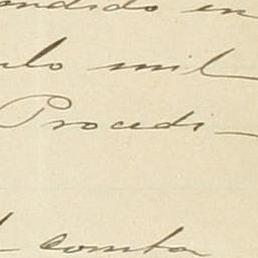 ondido en
ulo mil
Procedi-
consta